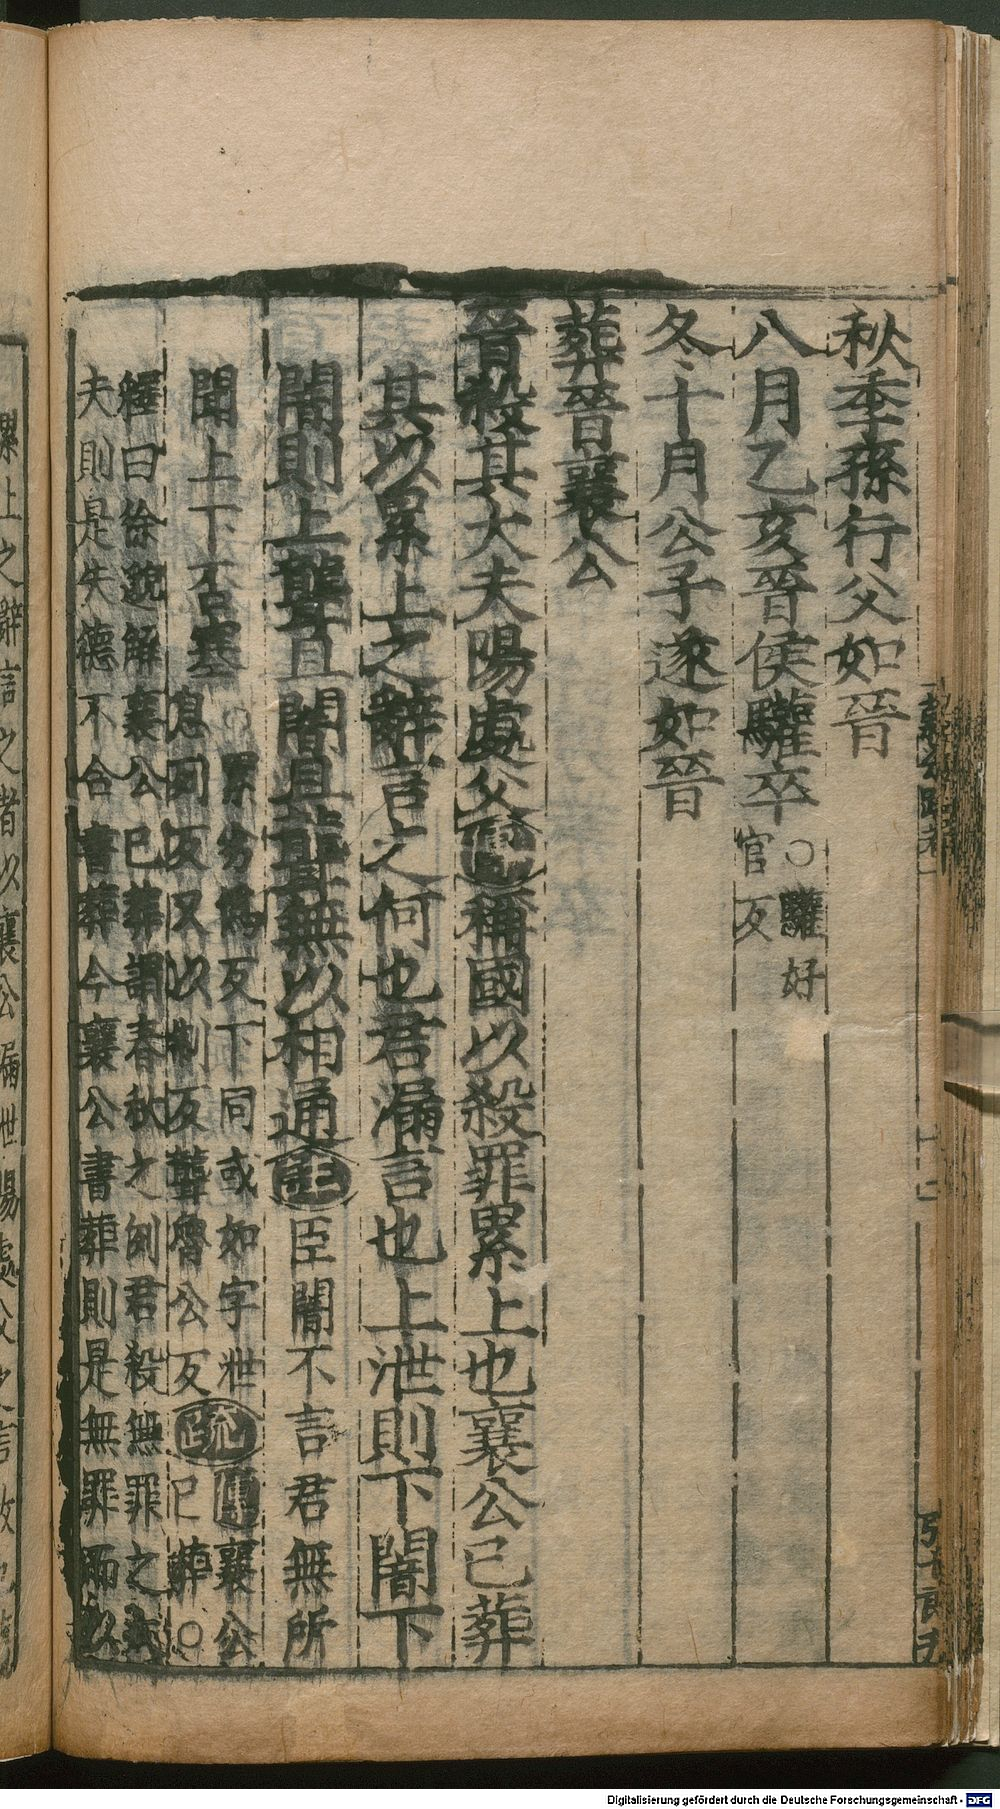 秋季孫行父如晉
八月乙亥晉侯驩卒○驩好
官反
冬十月公子遂如晉
葬晉襄公
晉殺其大夫陽處父傳稱國以殺罪累上也襄公已葬
其以累上之辭言之何也君漏言也上泄則下闇下
闇則上聾且闇且聾無以相通注臣闇不言君無所
聞上下否塞
○累劣偽反下同或如字泄
息列反又以制反聾魯公反疏傳襄公
已葬○
釋曰徐邈解襄公已葬謂春秋之例君殺無罪之大
夫則是失德不合書葬今襄公書葬則是無罪而以
累上之辭言之者以襄公漏泄陽處父之言故
Digitalisierung gefördert durch die Deutsche Forschungsgemeinschaft - DFG